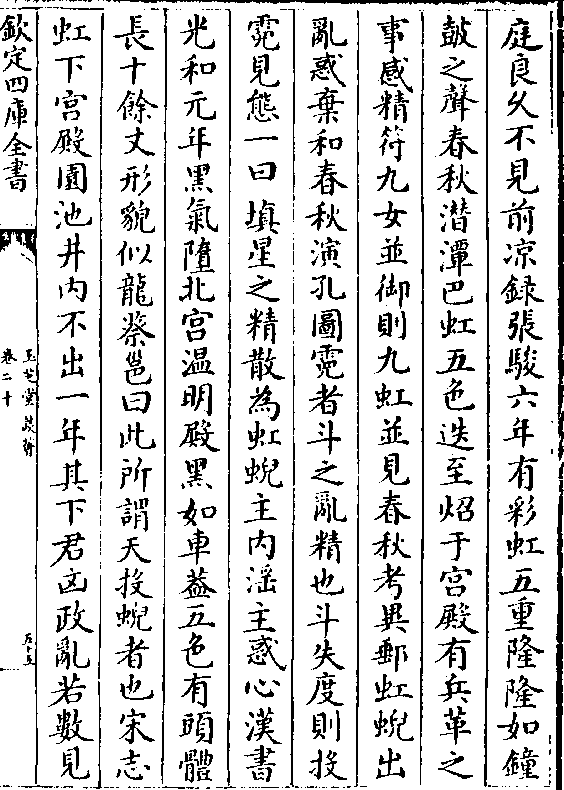 庭良久不見前凉録張駿六年有彩虹五重隆隆如鐘
鼓之聲春秋潜潭巴虹五色迭至炤于宫殿有兵革之
事感精符九女並御則九虹並見春秋考異郵虹蜺出
亂惑棄和春秋演孔圖霓者斗之亂精也斗失度則投
霓見態一曰填星之精散為虹蜺主内淫主惑心漢書
光和元年黑氣墮北宫温明殿黑如車葢五色有頭體
長十餘丈形貌似龍蔡邕曰此所謂天投蜺者也宋志
虹下宫殿園池井内不出一年其下君凶政亂若數見
欽定四庫全書
玉芝堂談薈
卷二十
五十五